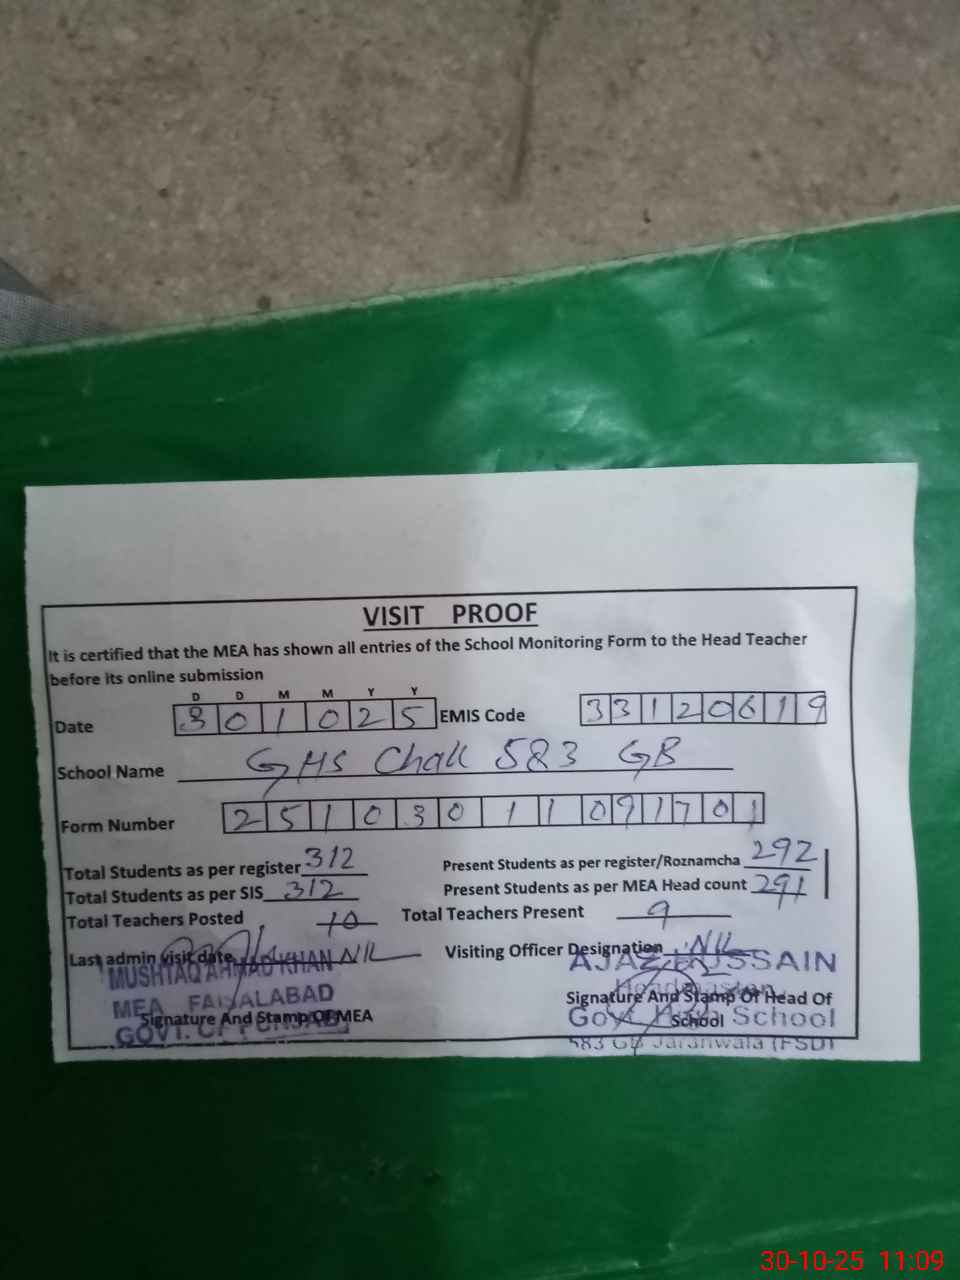 VISIT PROOF
It is certified that the MEA has shown all entries of the School Monitoring Form to the Head Teacher
before its online submission
D D M M Y Y
Date 301025 EMIS Code 33120619
School Name GHS Chak 583 GB
Form Number 25103011091701
Total Students as per register 312 Present Students as per register/Roznamcha 292
Total Students as per SIS 312 Present Students as per MEA Head count 291
Total Teachers Posted 10 Total Teachers Present 9
Last admin visit date NIL Visiting Officer Designation NIL
MUSHTAQ AHMAD KHAN AJAZ HUSSAIN
MEA FAISALABAD Headmaster
Signature And Stamp Of MEA Signature And Stamp Of Head Of School
GOVT. OF PUNJAB Govt. High School
583 GB Jaranwala (FSD)
30-10-25 11:09